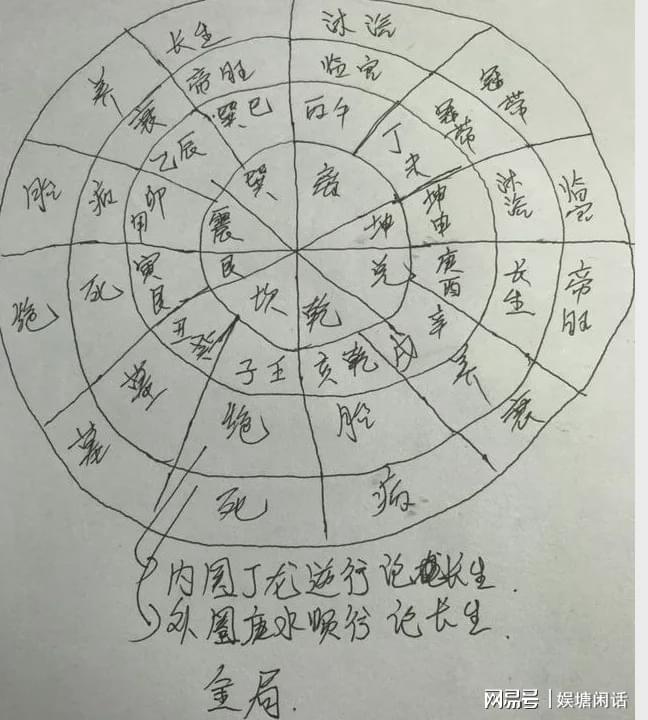 长生 沐浴 冠带 临官 帝旺 衰 病 死 墓 绝 胎 养
帝旺 临官 冠带 沐浴 长生 养 胎 绝 墓 死 病 衰
巽巳 丙午 丁未 坤申 庚酉 辛戌 乾亥 壬子 癸丑 艮寅 甲卯 乙辰
巽 离 坤 兑 乾 坎 艮 震
内圈丁龙逆行论长生.
外圈庚水顺行论长生.
金局.
网易号 | 娱塘闲话